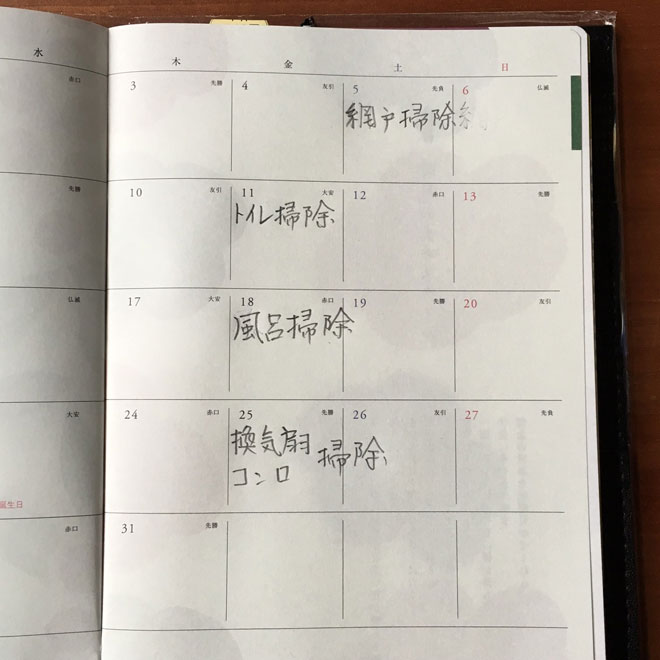 水 木 金 土 日
赤口 3 先勝 4 友引 5 先負 6 仏滅
網戸掃除
先勝 10 友引 11 大安 12 赤口 13 先勝
トイレ掃除
仏滅 17 大安 18 赤口 19 先勝 20 友引
風呂掃除
大安 24 赤口 25 先勝 26 友引 27 先負
換気扇 掃除
コンロ
誕生日
赤口 31 先勝